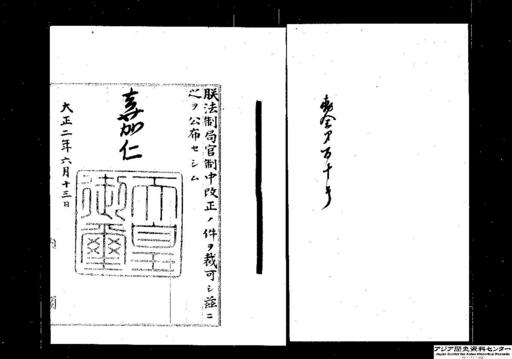 勅令第百十号
朕法制局官制中改正ノ件ヲ裁可シ茲ニ
之ヲ公布セシム
嘉仁
天皇
御璽
大正二年六月十三日
内閣
アジア歴史資料センター
Japan Center for Asian Historical Records